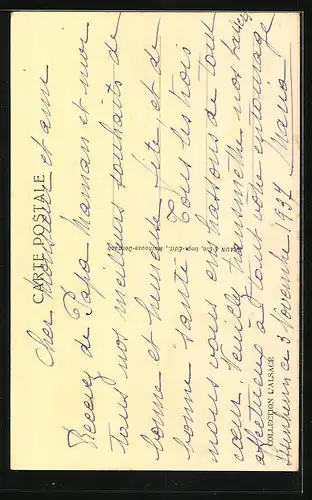 CARTE POSTALE
Cher Monsieur et ami
Recevez de Papa Maman et moi
tous nos meilleurs souhaits de
bonne et heureuse fête, et de
bonne santé. Tous les trois
nous vous embrassons de tout
cœur. Veuillez transmettre nos baisers
affectueux à tout votre entourage
ce 3 Novembre 1937 Maria
BRAUN & Cie, Impr.-Edit., Mulhouse-Dornach
COLLECTION L'ALSACE